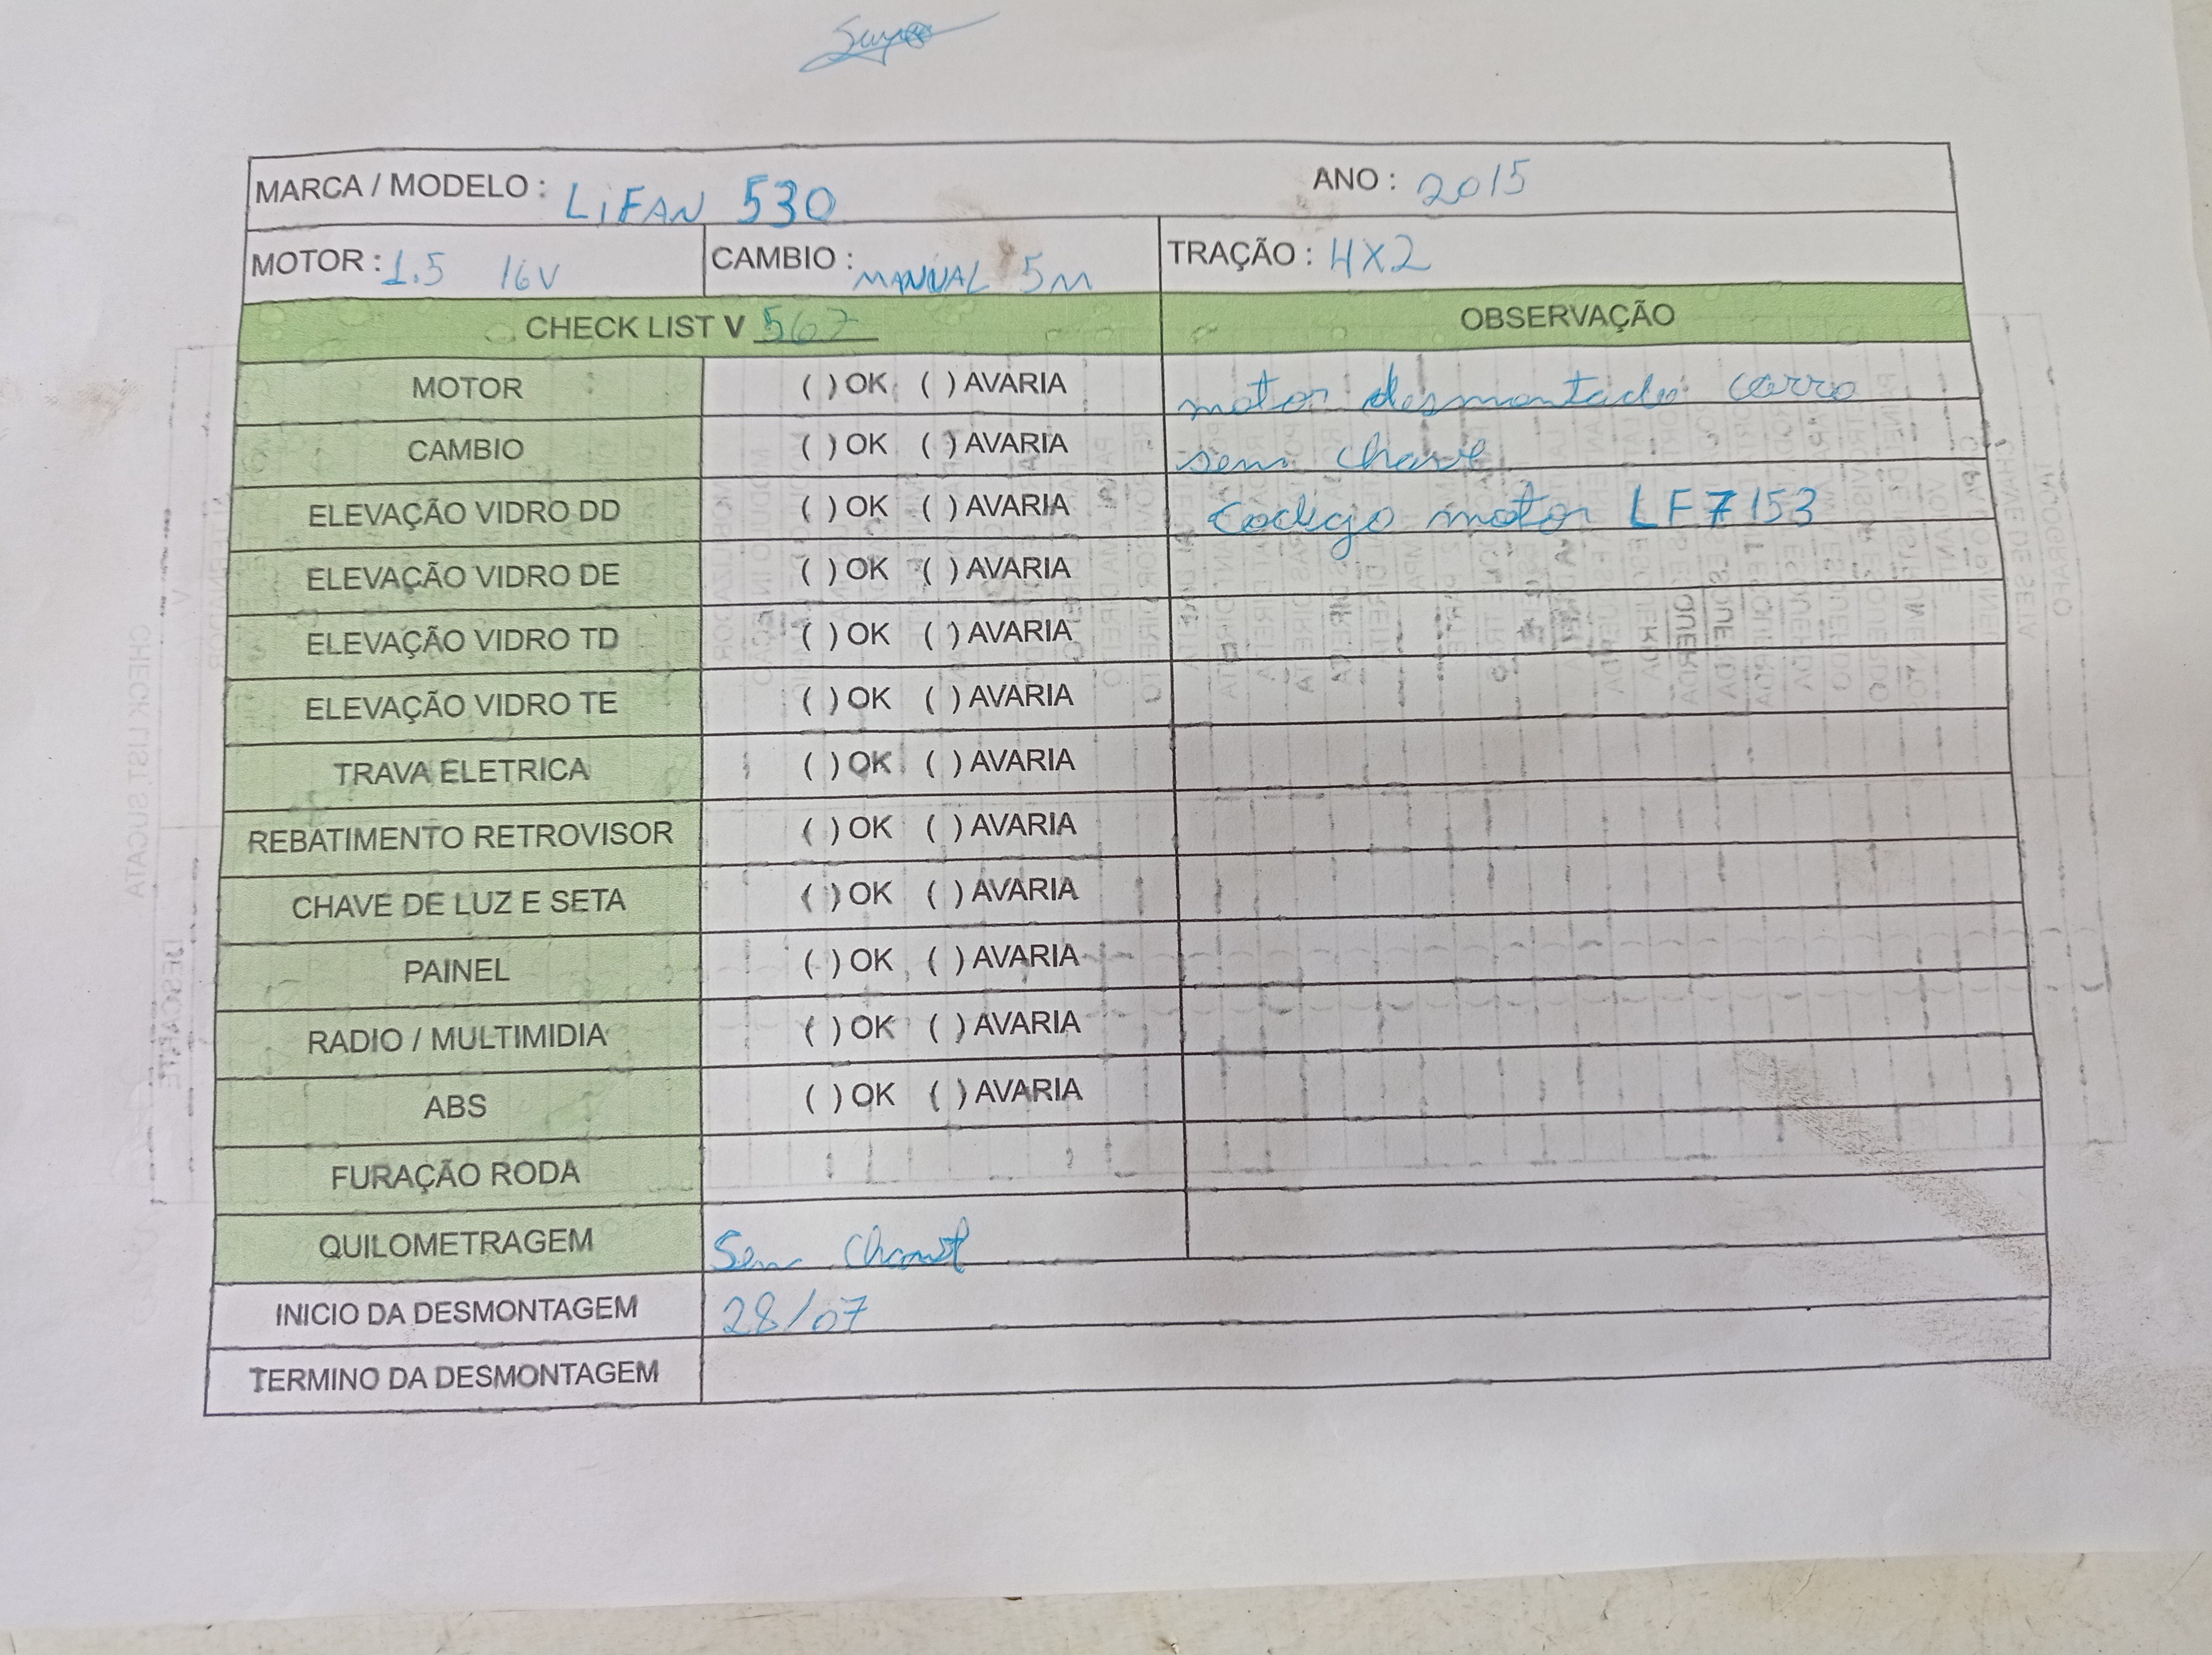 MARCA / MODELO : LiFAN 530 ANO : 2015
MOTOR : 1.5 16V CAMBIO : MANUAL 5M TRAÇÃO : 4X2
CHECK LIST V 567 OBSERVAÇÃO
MOTOR ( ) OK ( ) AVARIA motor desmontado carro
CAMBIO ( ) OK ( ) AVARIA sem chave
ELEVAÇÃO VIDRO DD ( ) OK ( ) AVARIA codigo motor LF7153
ELEVAÇÃO VIDRO DE ( ) OK ( ) AVARIA
ELEVAÇÃO VIDRO TD ( ) OK ( ) AVARIA
ELEVAÇÃO VIDRO TE ( ) OK ( ) AVARIA
TRAVA ELETRICA ( ) OK ( ) AVARIA
REBATIMENTO RETROVISOR ( ) OK ( ) AVARIA
CHAVE DE LUZ E SETA ( ) OK ( ) AVARIA
PAINEL ( ) OK ( ) AVARIA
RADIO / MULTIMIDIA ( ) OK ( ) AVARIA
ABS ( ) OK ( ) AVARIA
FURAÇÃO RODA
QUILOMETRAGEM Sem chave
INICIO DA DESMONTAGEM 28/07
TERMINO DA DESMONTAGEM